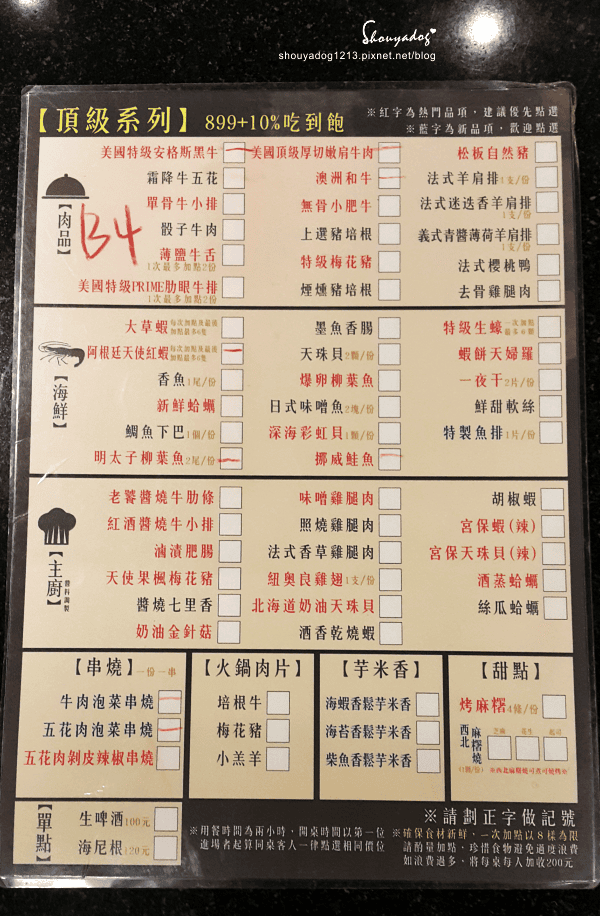 Shouyadog
shouyadog1213.pixnet.net/blog
【頂級系列】 899+10%吃到飽
※紅字為熱門品項，建議優先點選
※藍字為新品項，歡迎點選
【肉品】
B4
美國特級安格斯黑牛 美國頂級厚切嫩肩牛肉 松板自然豬
霜降牛五花 澳洲和牛 法式羊肩排1支/份
單骨牛小排 無骨小肥牛 法式迷迭香羊肩排1支/份
骰子牛肉 上選豬培根 義式青醬薄荷羊肩排1支/份
薄鹽牛舌 1次最多加點2份 特級梅花豬 法式櫻桃鴨
美國特級PRIME肋眼牛排 1次最多加點2份 煙燻豬培根 去骨雞腿肉
【海鮮】
大草蝦 每次加點及最後加點最多6隻 墨魚香腸 特級生蠔 一次加點最多6顆
阿根廷天使紅蝦 每次加點及最後加點最多6隻 天珠貝2顆/份 蝦餅天婦羅
香魚1尾/份 爆卵柳葉魚 一夜干2片/份
新鮮蛤蠣 日式味噌魚2塊/份 鮮甜軟絲
鯛魚下巴1個/份 深海彩虹貝1顆/份 特製魚排1片/份
明太子柳葉魚2尾/份 挪威鮭魚
【主廚】
醬料調製
老饕醬燒牛肋條 味噌雞腿肉 胡椒蝦
紅酒醬燒牛小排 照燒雞腿肉 宮保蝦(辣)
滷漬肥腸 法式香草雞腿肉 宮保天珠貝(辣)
天使果楓梅花豬 紐奧良雞翅1支/份 酒蒸蛤蠣
醬燒七里香 北海道奶油天珠貝 絲瓜蛤蠣
奶油金針菇 酒香乾燒蝦
【串燒】一份一串
牛肉泡菜串燒
五花肉泡菜串燒
五花肉剝皮辣椒串燒
【火鍋肉片】
培根牛
梅花豬
小羔羊
【芋米香】
海蝦香鬆芋米香
海苔香鬆芋米香
柴魚香鬆芋米香
【甜點】
烤麻糬4條/份
西北麻糬燒(1顆/份) 芝麻 花生
※西北麻糬燒可煮可燒烤※
【單點】
生啤酒100元
海尼根120元
※請劃正字做記號
※用餐時間為兩小時，開桌時間以第一位
進場者起算同桌客人一律點選相同價位
※確保食材新鮮，一次加點以8樣為限
請酌量加點，珍惜食物避免過度浪費
如浪費過多，將每桌每人加收200元